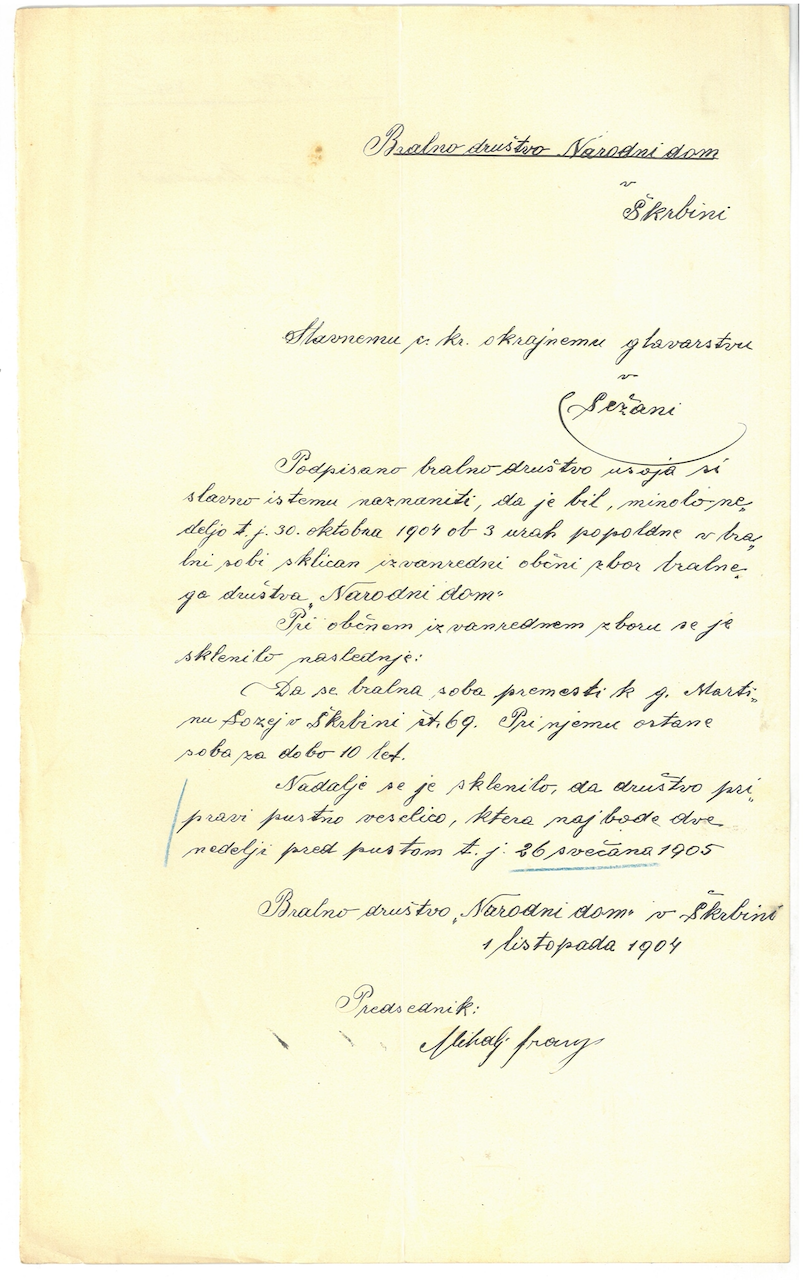 Bralno društvo Narodni dom
v
Škrbini
Slavnemu c. kr. okrajnemu glavarstvu
v
Sežani
Podpisano bralno društvo usoja si
slavno istemu naznaniti, da je bil, minolo ne„
deljo t. j. 30. oktobra 1904 ob 3 urah popoldne v bra„
lni sobi sklican izvanredni občni zbor bralne„
ga društva „Narodni dom"
Pri občnem izvanrednem zboru se je
sklenilo naslednje:
Da se bralna soba premesti k g. Marti„
nu Sozej v Škrbini št. 69. Pri njemu ostane
soba za dobo 10 let.
Nadalje se je sklenilo, da društvo pri„
pravi pustno veselico, ktera naj bode dve
nedelji pred pustom t. j. 26 svečana 1905
Bralno društvo „Narodni dom" v Škrbini
1 listopada 1904
Predsednik:
Mihalj